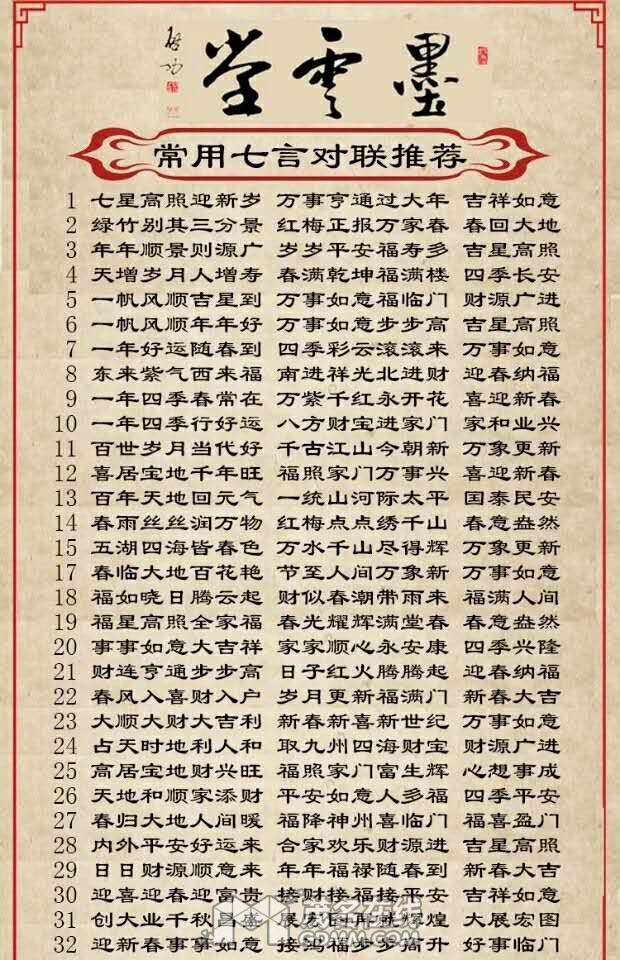 墨雲堂
启功
常用七言对联推荐
1 七星高照迎新岁 万事亨通过大年 吉祥如意
2 绿竹别其三分景 红梅正报万家春 春回大地
3 年年顺景则源广 岁岁平安福寿多 吉星高照
4 天增岁月人增寿 春满乾坤福满楼 四季长安
5 一帆风顺吉星到 万事如意福临门 财源广进
6 一帆风顺年年好 万事如意步步高 吉星高照
7 一年好运随春到 四季彩云滚滚来 万事如意
8 东来紫气西来福 南进祥光北进财 迎春纳福
9 一年四季春常在 万紫千红永开花 喜迎新春
10 一年四季行好运 八方财宝进家门 家和业兴
11 百世岁月当代好 千古江山今朝新 万象更新
12 喜居宝地千年旺 福照家门万事兴 喜迎新春
13 百年天地回元气 一统山河际太平 国泰民安
14 春雨丝丝润万物 红梅点点绣千山 春意盎然
15 五湖四海皆春色 万水千山尽得辉 万象更新
17 春临大地百花艳 节至人间万象新 万事如意
18 福如晓日腾云起 财似春潮带雨来 福满人间
19 福星高照全家福 春光耀辉满堂春 春意盎然
20 事事如意大吉祥 家家顺心永安康 四季兴隆
21 财连亨通步步高 日子红火腾腾起 迎春纳福
22 春风入喜财入户 岁月更新福满门 新春大吉
23 大顺大财大吉利 新春新喜新世纪 万事如意
24 占天时地利人和 取九州四海财宝 财源广进
25 高居宝地财兴旺 福照家门富生辉 心想事成
26 天地和顺家添财 平安如意人多福 四季平安
27 春归大地人间暖 福降神州喜临门 福喜盈门
28 内外平安好运来 合家欢乐财源进 吉星高照
29 日日财源顺意来 年年福禄随春到 新春大吉
30 迎喜迎春迎富贵 接财接福接平安 吉祥如意
31 创大业千秋昌盛 展宏图再就辉煌 大展宏图
32 迎新春事事如意 接鸿福步步高升 好事临门
茂名在线
GDMM.COM